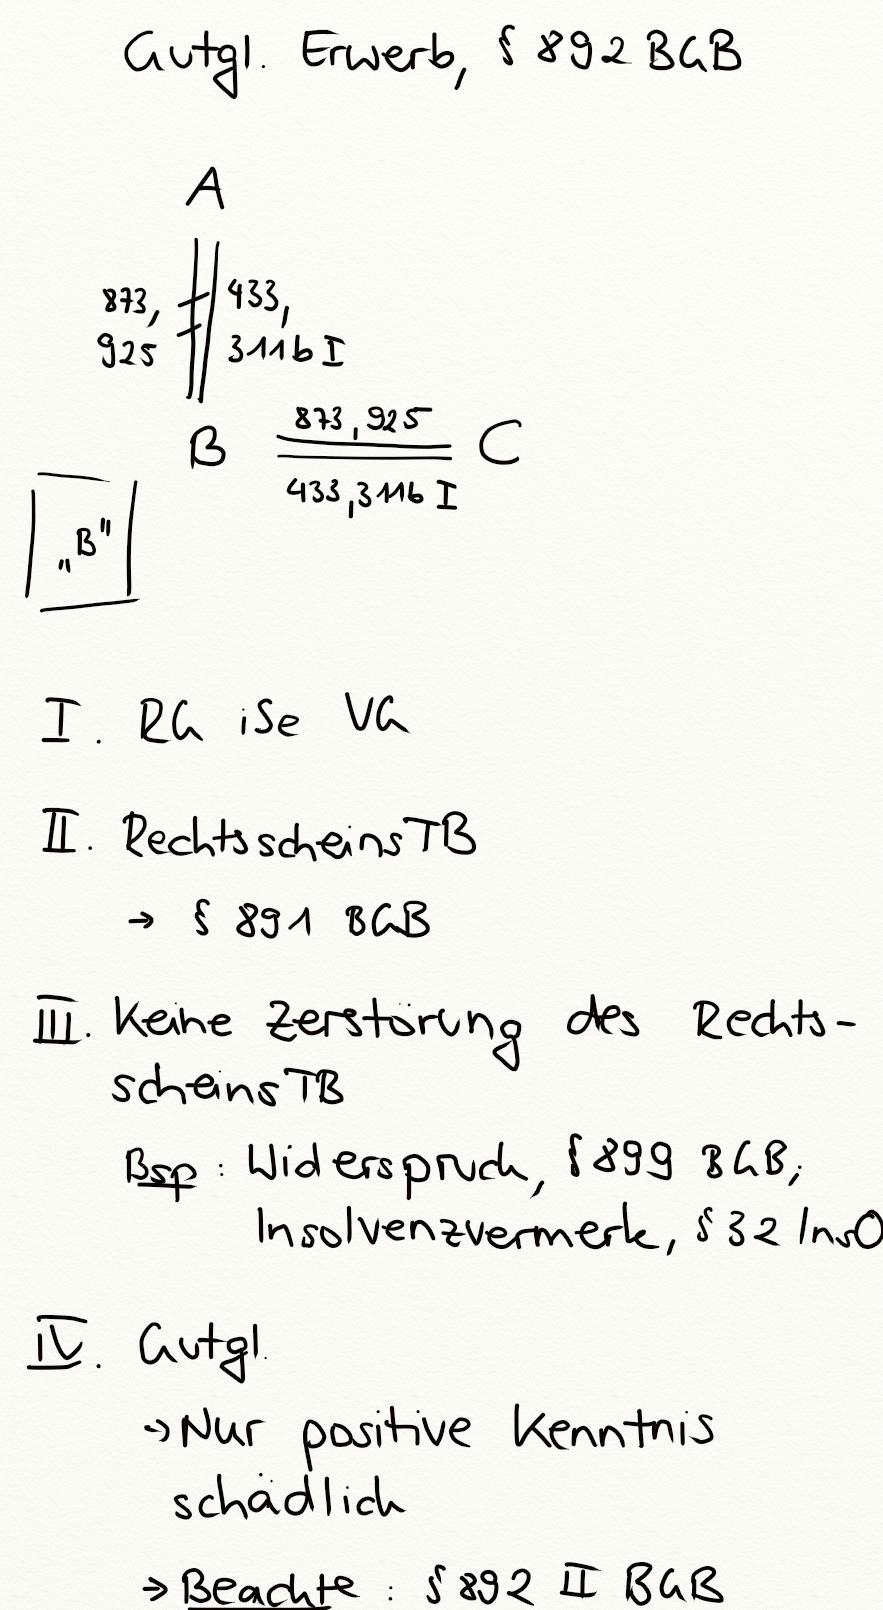 Gutgl. Erwerb, § 892 BGB
A
873, 433,
925 311b I
873, 925
B C
433, 311b I
„B"
I. RG iSe VG
II. RechtsscheinsTB
→ § 891 BGB
III. Keine Zerstörung des Rechts-
scheinsTB
Bsp: Widerspruch, § 899 BGB;
Insolvenzvermerk, § 32 InsO
IV. Gutgl.
→ Nur positive Kenntnis
schädlich
→ Beachte: § 892 II BGB